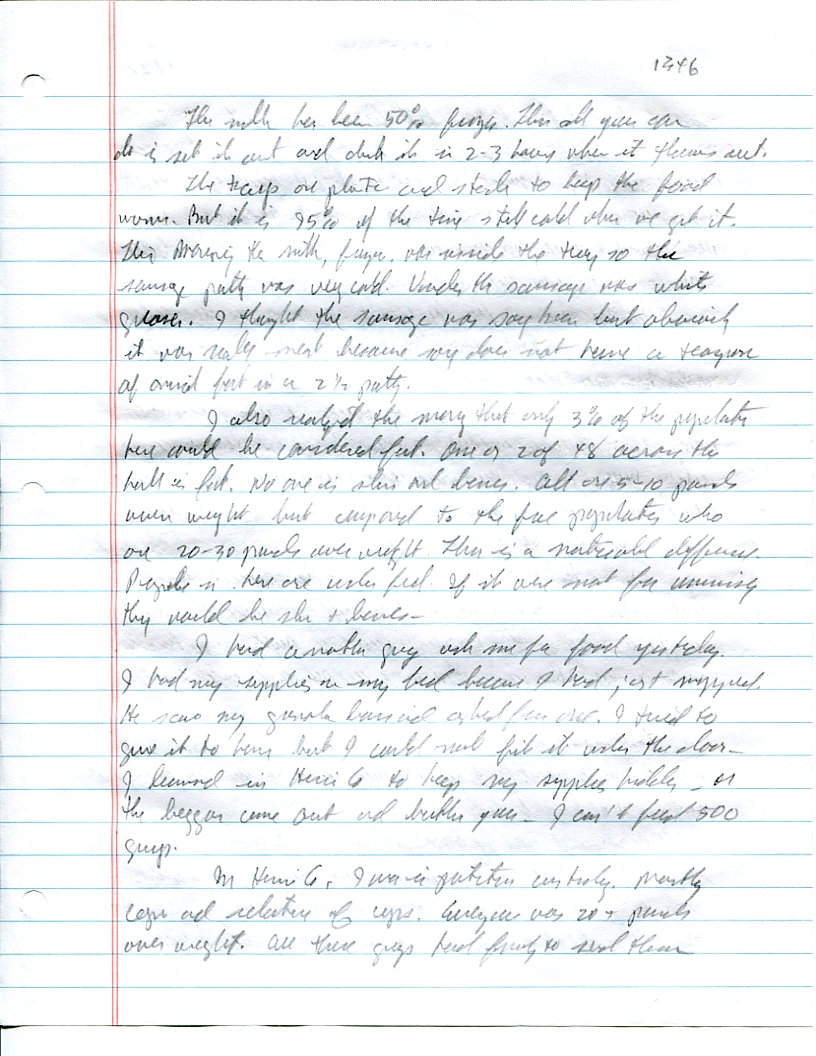 1346
The milk has been 50% frozen. Then all you can
do is set it out and drink it in 2-3 hours when it thaws out.
The trays are plastic and stack to keep the food
warm. But it is 95% of the time still cold when we get it.
This morning the milk, frozen, was inside the tray so the
sausage patty was very cold. Under the sausage was white
grease. I thought the sausage was soy bean but obviously
it was really meat because soy does not have a teaspoon
of animal fat in a 2 ½ patty.
I also realized this morning that only 3% of the population
here could be considered fat. One or 2 of 48 across the
hall is fat. No one is skin and bones. All are 5-10 pounds
over weight but compared to the free population who
are 20-30 pounds over weight. There is a noticeable difference.
People in here are under fed. If it were not for commissary
they would be skin + bones-
I had another guy ask me for food yesterday.
I had my supplies on my bed because I had just mopped.
He saw my granola bars and asked for one. I tried to
give it to him but I could not fit it under the door-
I learned in Henrico to keep my supplies hidden - or
the beggars come out and bother you - I can't feed 500
guys.
In Henrico, I was in protective custody. Mostly
cops and relatives of cops. Everyone was 20+ pounds
over weight. All these guys had family to send them